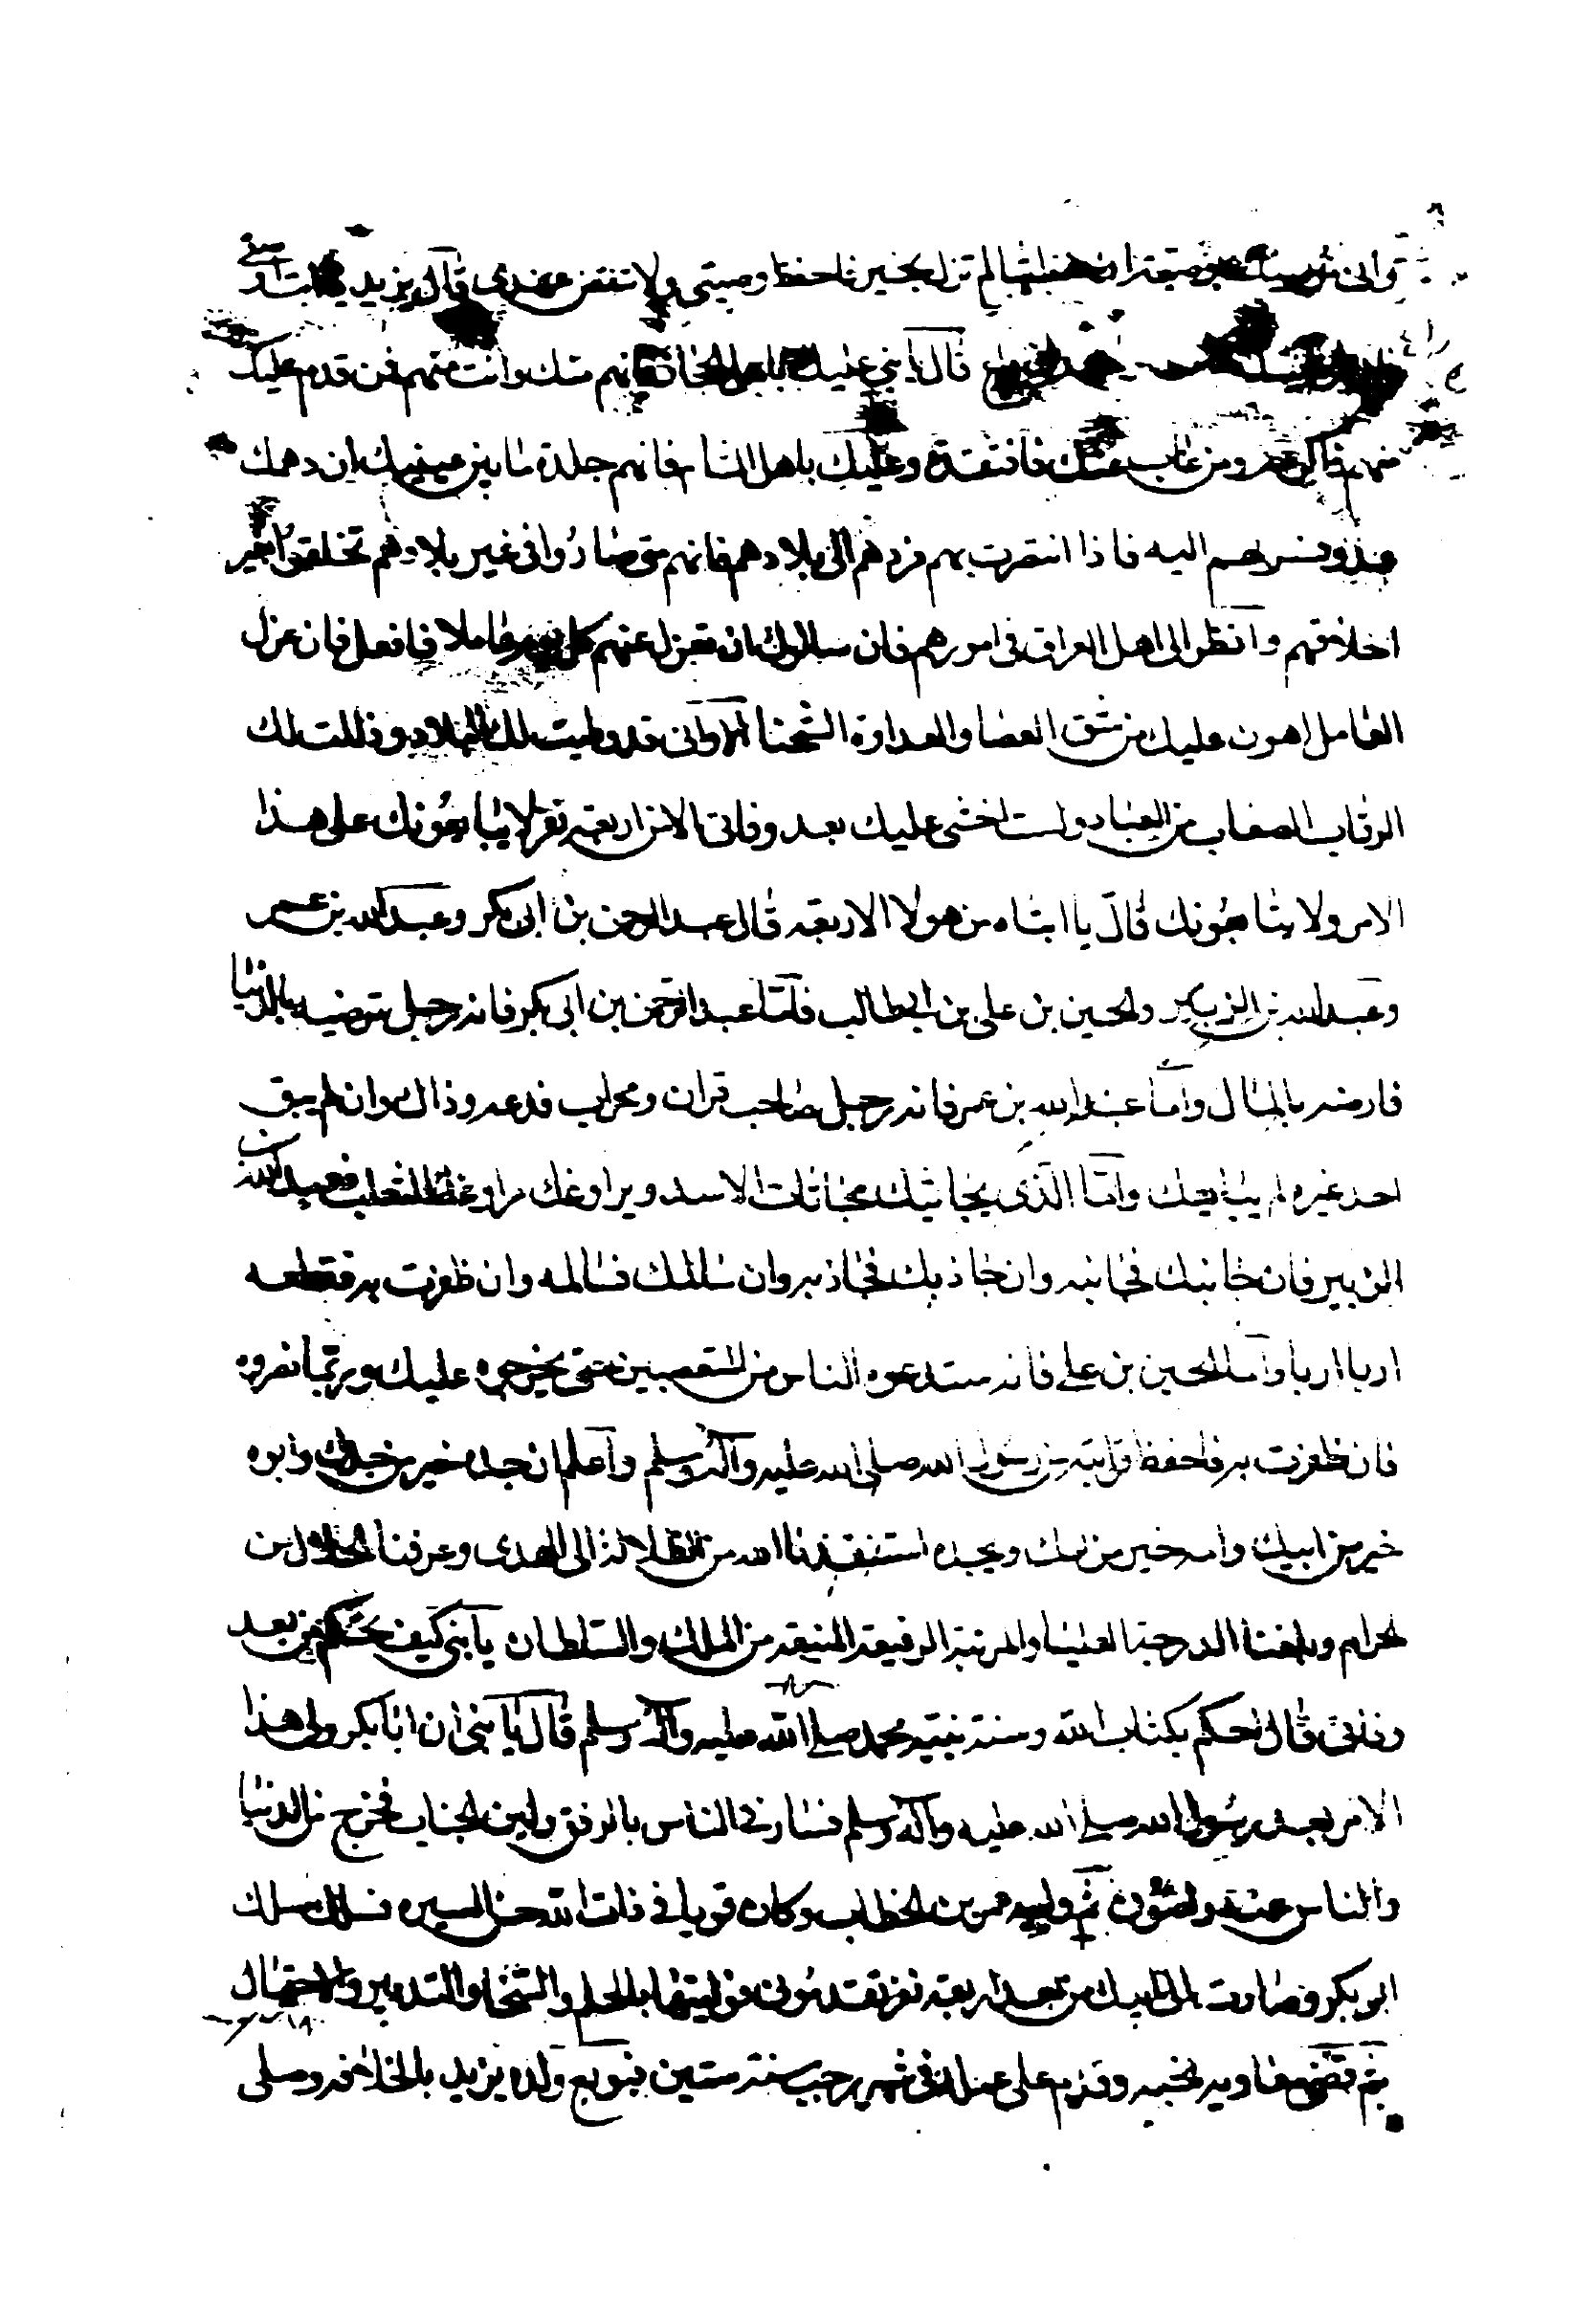 واني موصيك بوصية ان حفظتها لم تزل بخير فاحفظ وصيتي ولا تنقض عهدي قال يزيد يا ابتاه
قال يا بني عليك باهل الحجاز فانهم منك وانت منهم فمن قدم عليك
منهم فاكرمه ومن غاب عنك فافتقده وعليك باهل الشام فانهم جلدة ما بين عينيك ان دهمك
عدو فسر بهم اليه فاذا انتصرت بهم فردهم الى بلادهم فانهم متى صاروا في غير بلادهم تخلقوا بغير
اخلاقهم وانظر الى اهل العراق في امورهم فان سالوك ان تعزل عنهم كل يوم عاملا فافعل فان عزل
العامل اهون عليك من شق العصا والعداوة الشحنا الا واني قد وطيت لك البلاد وذللت لك
الرقاب الصعاب من العباد ولست اخشى عليك بعد وفاتي الا من اربعة نفر لا يبايعونك على هذا
الامر ولا يشايعونك قال يا ابتاه من هولا الاربعة قال عبد الرحمن بن ابي بكر وعبد الله بن عمر
وعبد الله بن الزبير والحسين بن علي بن ابي طالب فاما عبد الرحمن بن ابي بكر فانه رجل ترضيه بالدنيا
فارضه بالمال واما عبد الله بن عمر فانه رجل صاحب قران ومحراب فدعه وذاك وان لم يبق
احد غيره لم يبايعك واما الذي يجاثيك مجاثات الاسد ويراوغك مراوغة الثعلب فعبد الله بن
الزبير فان جانبك فجانبه وان جاذبك فجاذبه وان سالمك فسالمه وان ظفرت به فقطعه
اربا اربا واما الحسين بن علي فانه ستدعوه الناس من المتعصبين حتى يخرجوه عليك وربما نصروه
فان ظفرت به فاحفظ قرابته من رسول الله صلى الله عليه وآله وسلم واعلم ان جده خير من جدك وابوه
خير من ابيك وامه خير من امك وبجده استنقذنا الله من الضلالة الى الهدى وعرفنا الحلال من
لحرام وبلغنا الدرجة العليا والمرتبة الرفيعة المنيعة من الملك والسلطان يا بني كيف تحكم من بعد
وفاتي قال احكم بكتاب الله وسنة نبيه محمد صلى الله عليه وآله وسلم قال يا بني ان ابا بكر ولي هذا
الامر بعد رسول الله صلى الله عليه وآله وسلم فسار في الناس بالرفق ولين الجناب فخرج من الدنيا
والناس عنه راضون ثم وليه عمر بن الخطاب وكان قويا في ذات الله حسن السيره فسلك مسلك
ابو بكر وصارت الى ابيك من بعد اربعة نفر تقدموني فوليتها بالحلم والسخا والتدبير والاحتمال
ثم قضى معاويه نحبه وقدم على عمله في شهر رجب سنة ستين فبويع ولده يزيد بالخلافه وصلى